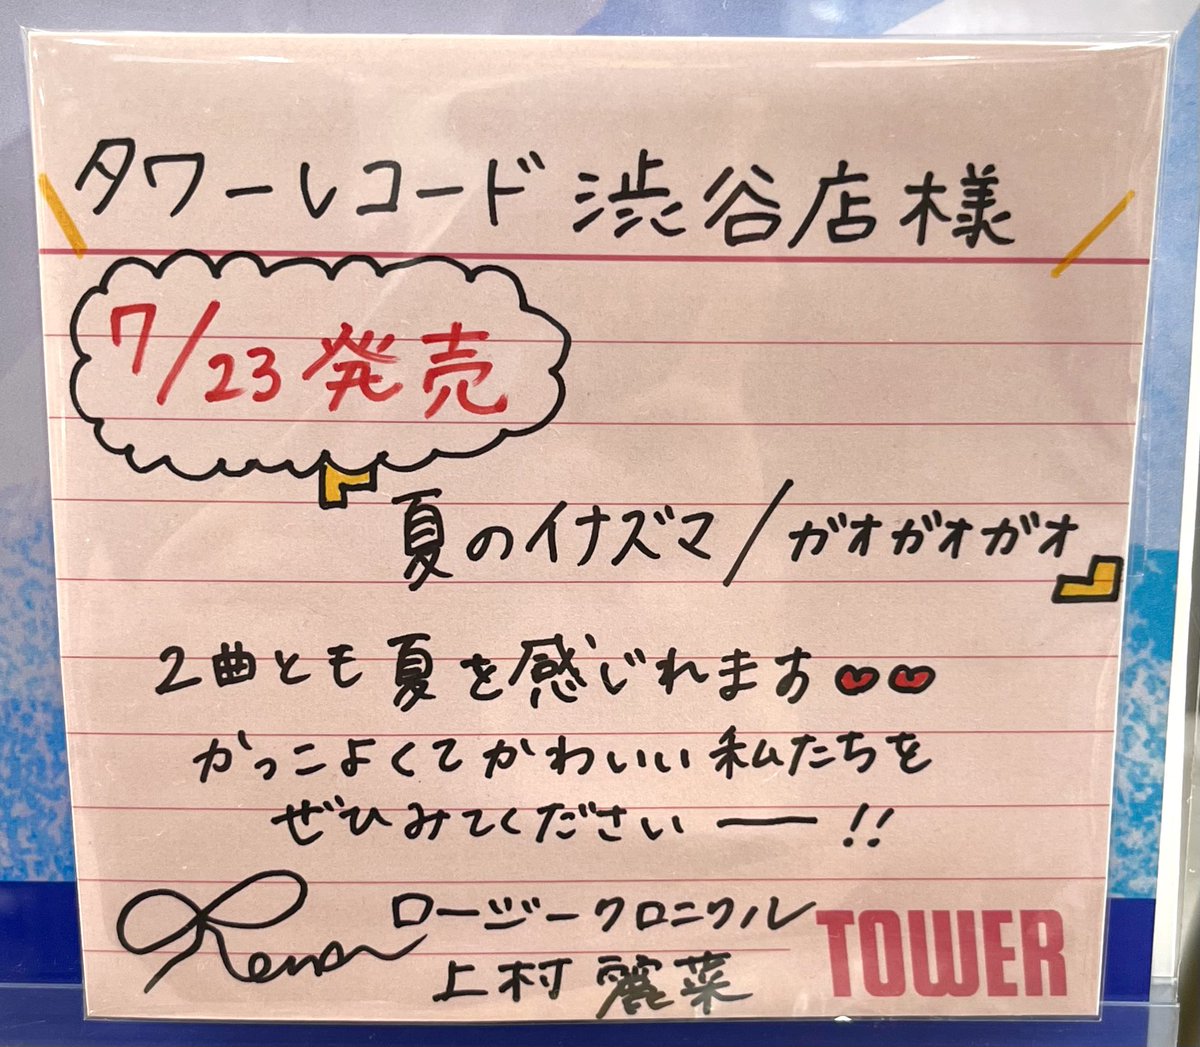 タワーレコード 渋谷店様
7/23 発売
「夏のイナズマ/ガオガオガオ」
2曲とも夏を感じれます
かっこよくてかわいい私たちを
ぜひみてくださいー!!
Rena
ロージークロニクル
上村麗菜
TOWER